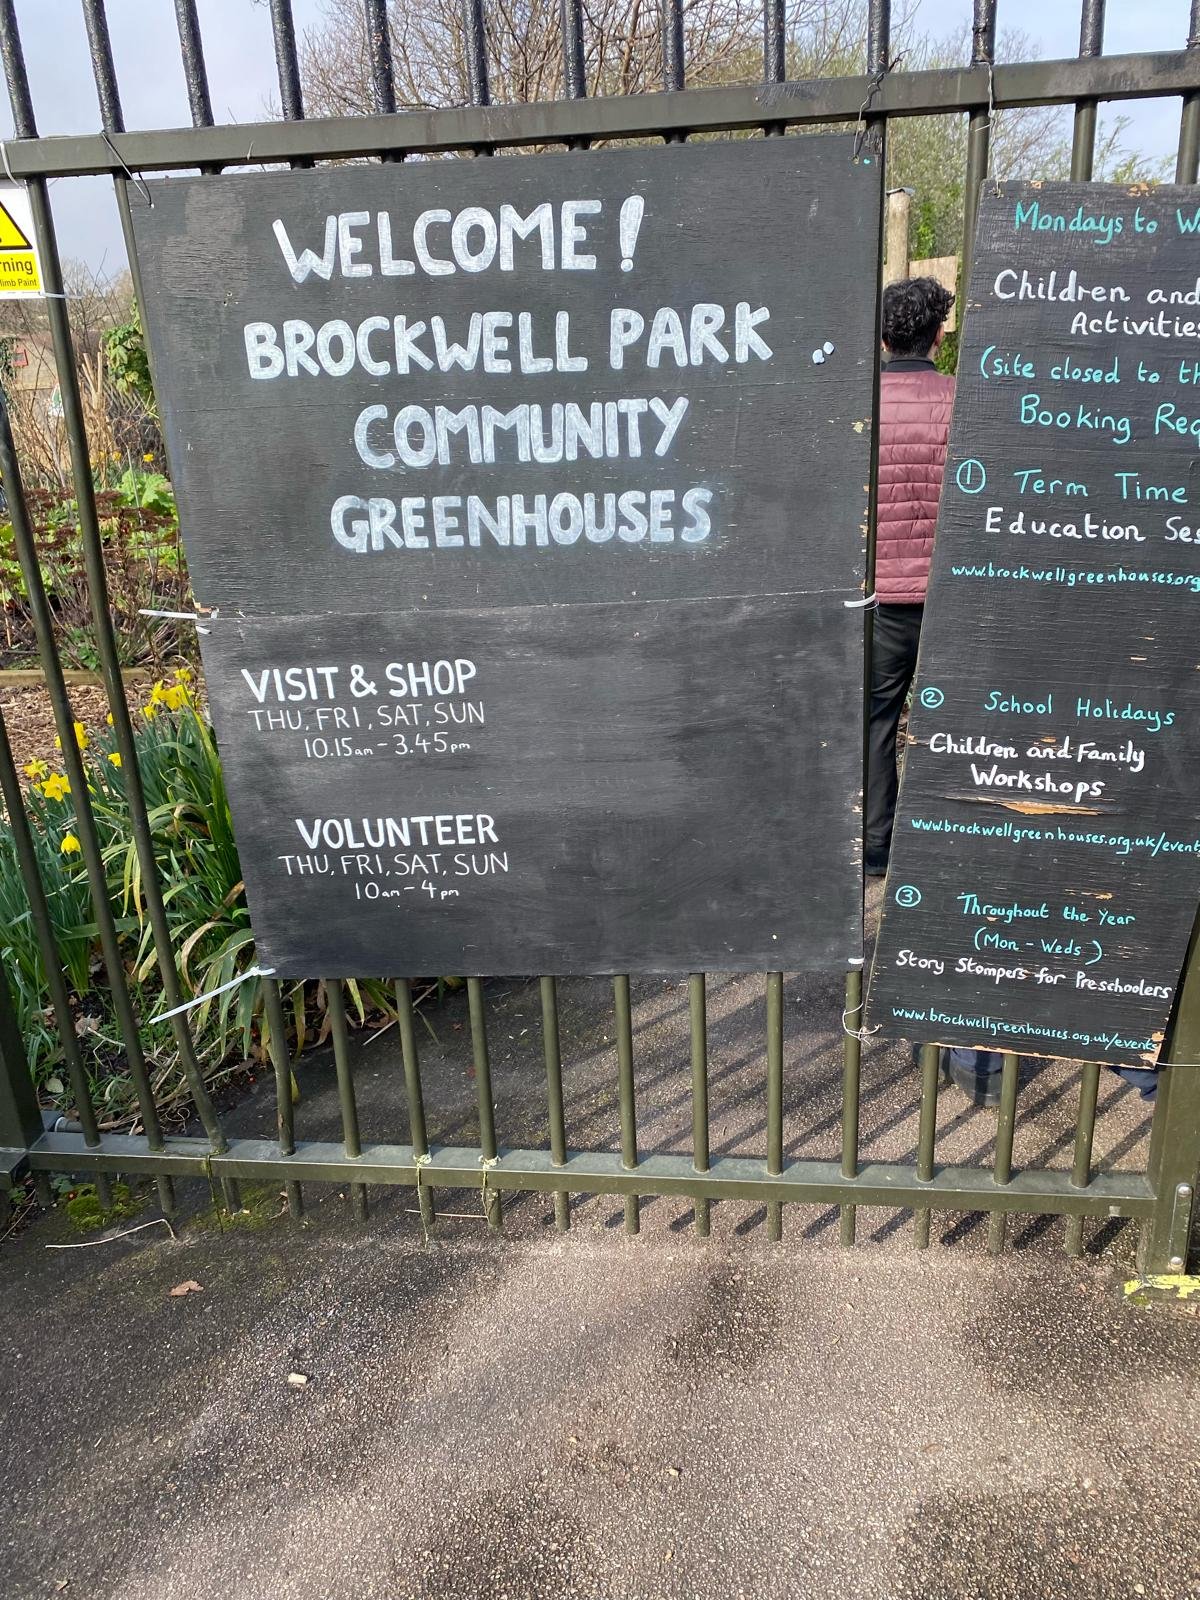 WELCOME!
BROCKWELL PARK
COMMUNITY
GREENHOUSES
VISIT & SHOP
THU, FRI, SAT, SUN
10.15am - 3.45pm
VOLUNTEER
THU, FRI, SAT, SUN
10am - 4pm
Mondays to
Children and
Activities
(site closed to
Booking
① Term Time
Education
www.brockwellgreenhouses.org
② School Holidays
Children and Family
Workshops
www.brockwellgreenhouses.org.uk/events
③ Throughout the Year
(Mon - Weds)
Story Stompers for Preschoolers
www.brockwellgreenhouses.org.uk/events
Paint